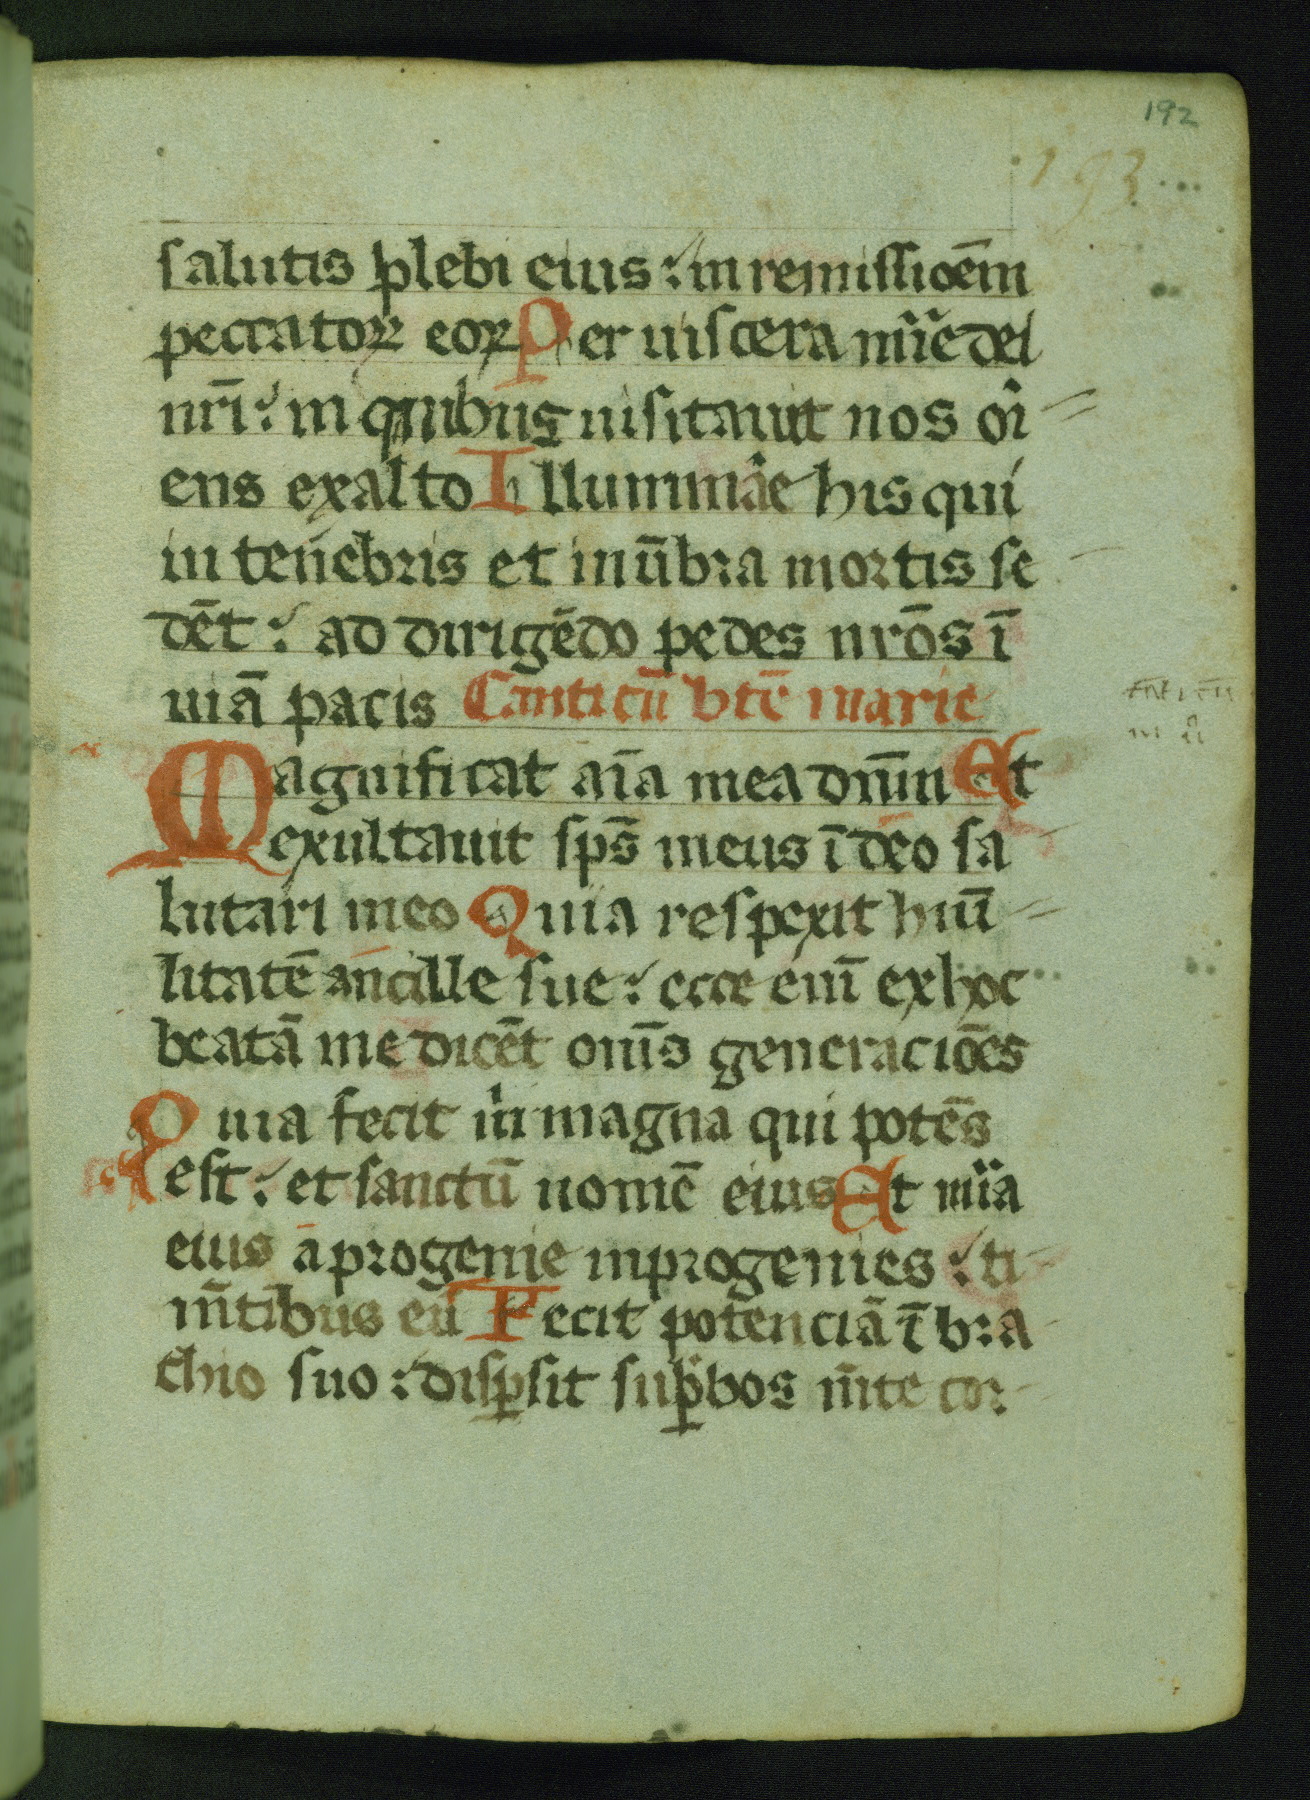 192
193
salutis plebi eius : in remissiōem
peccatoꝝ eoꝝ Per uiscera mīe dei
nrī : in quibus uisitauit nos ori
ens exalto Illuminaͤe his qui
in tenebris et inūbra mortis se
dēt : ad dirigēdo pedes nrōs ī
uiā pacis Canticū btē marie
Magnificat aīa mea dnm̄ Et
exultauit sps̄ meus ī deo sa
lutari meo Quia respexit humī
litatē ancille sue : ecce enī exhoc
beatā me dicēt oms̄ generaciōes
Quia fecit m̍i magna qui potēs
est : et sanctū nomē eius Et mīa
eius a progenie inprogenies : ti
m̄tibus eū Fecit potenciā ī bra
chio suo : disꝑsit suꝑbos m̄te cor